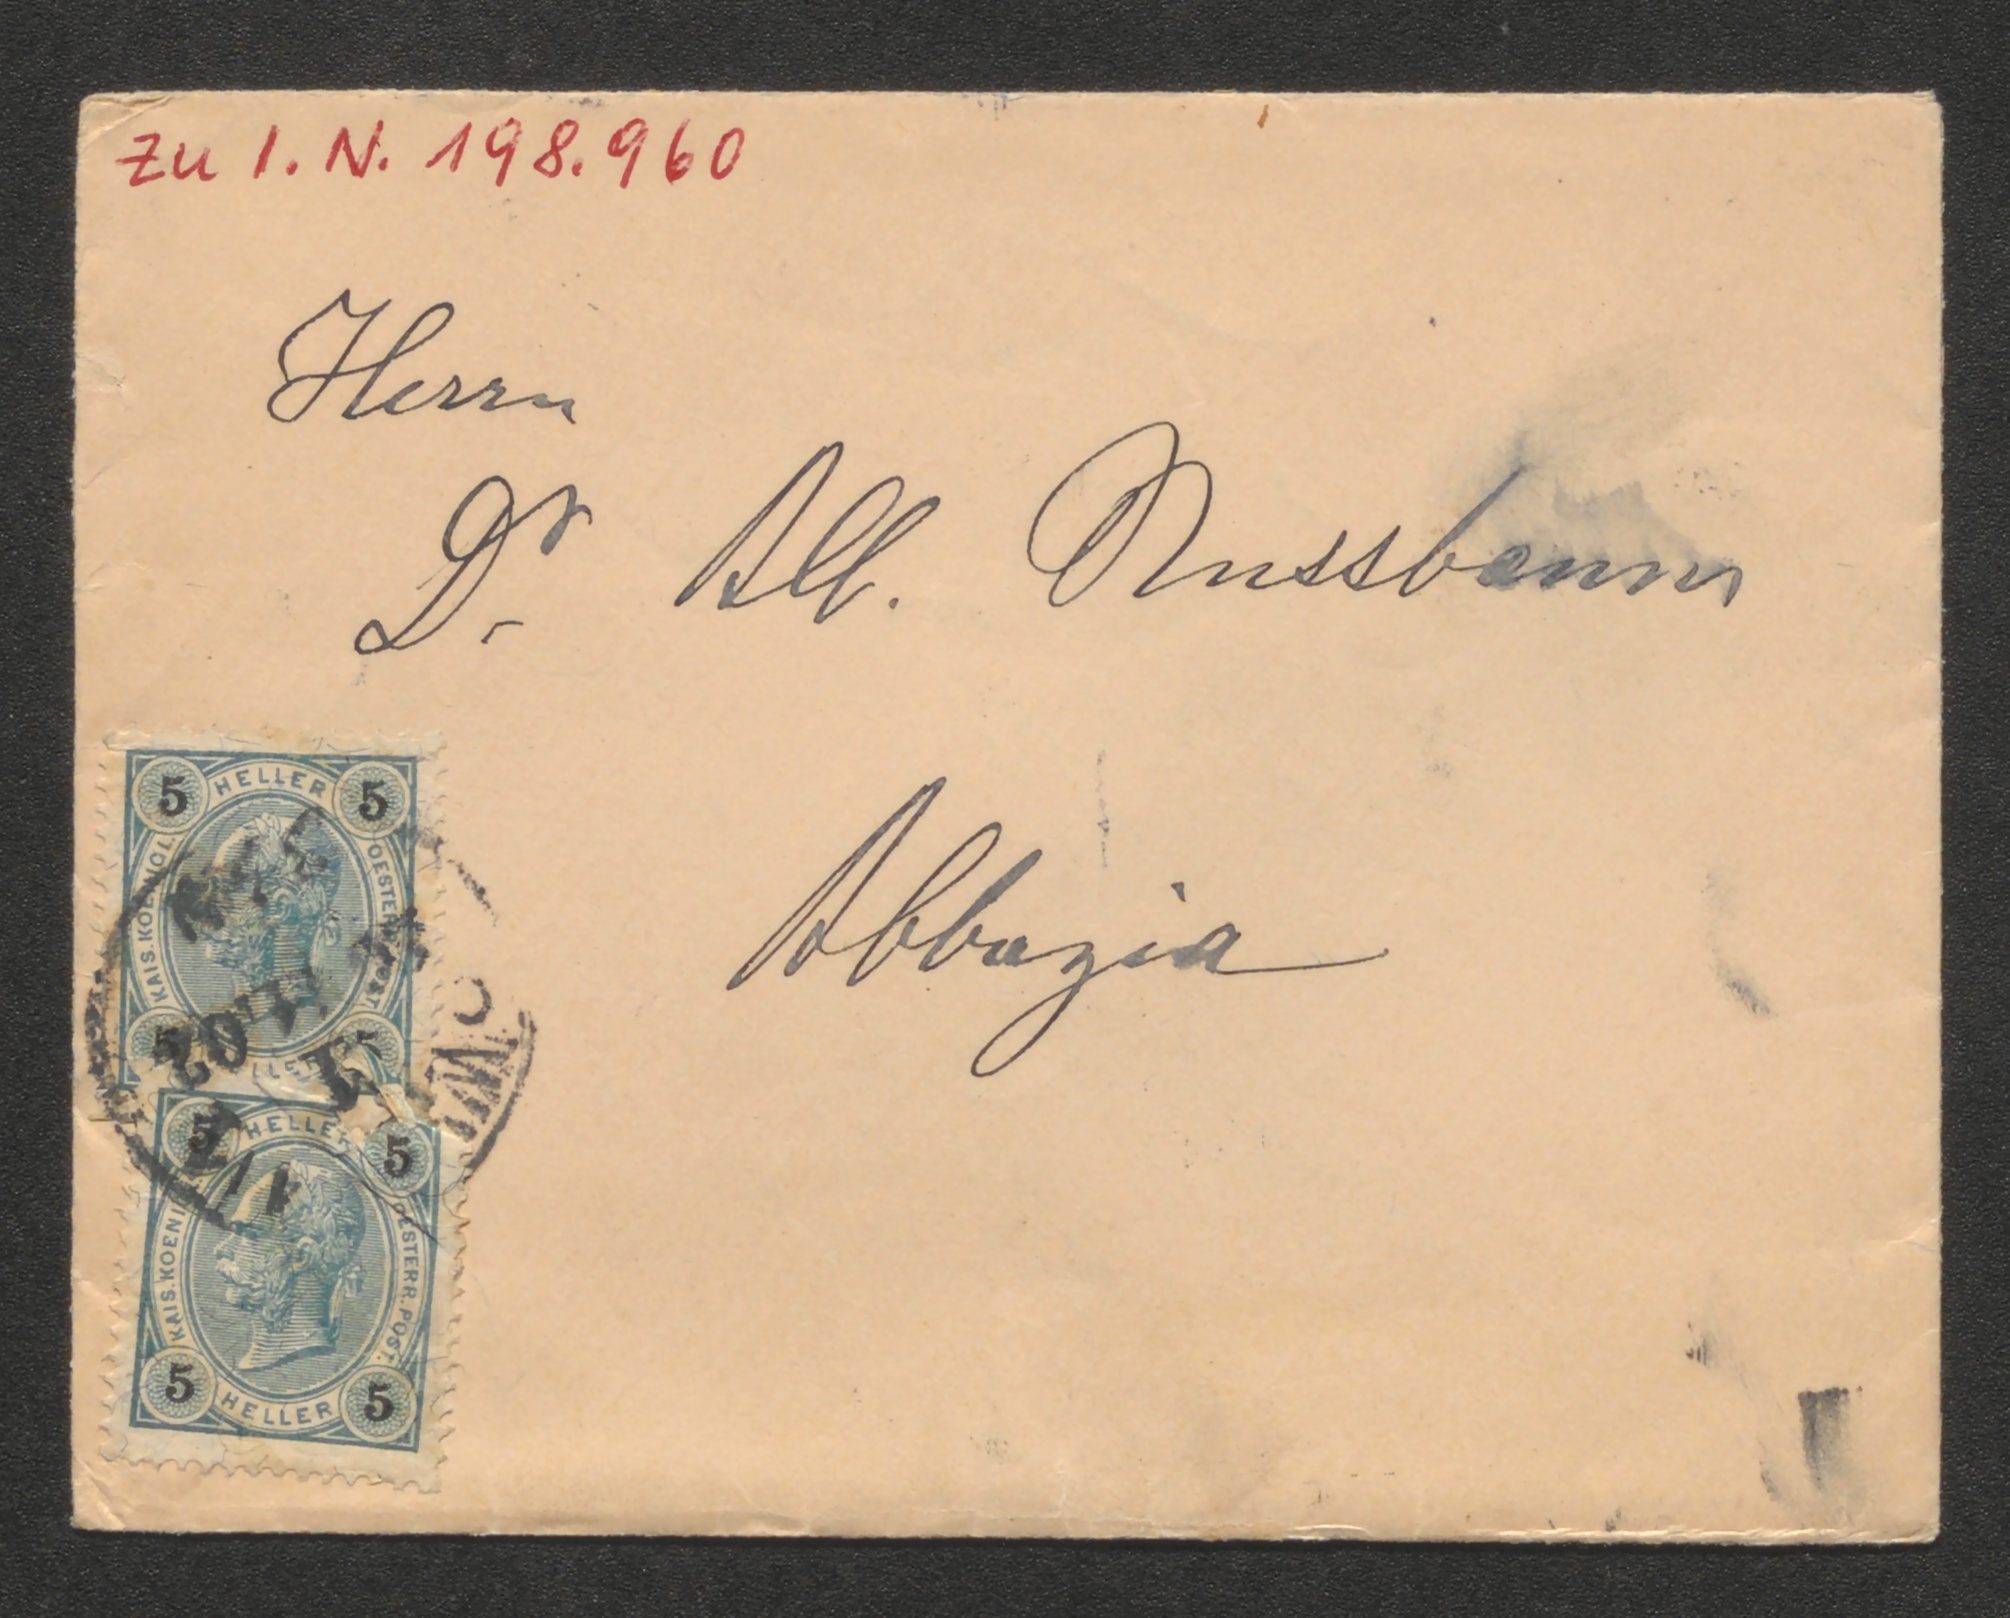 zu I. N. 198.960
Herrn
Dr Alb. Nussbaum
Abbazia
5 HELLER 5
KAIS. KOENIGL. OESTERR. POST.
5 5
02
5 HELLER 5
KAIS. KOENIGL. OESTERR. POST.
5 HELLER 5